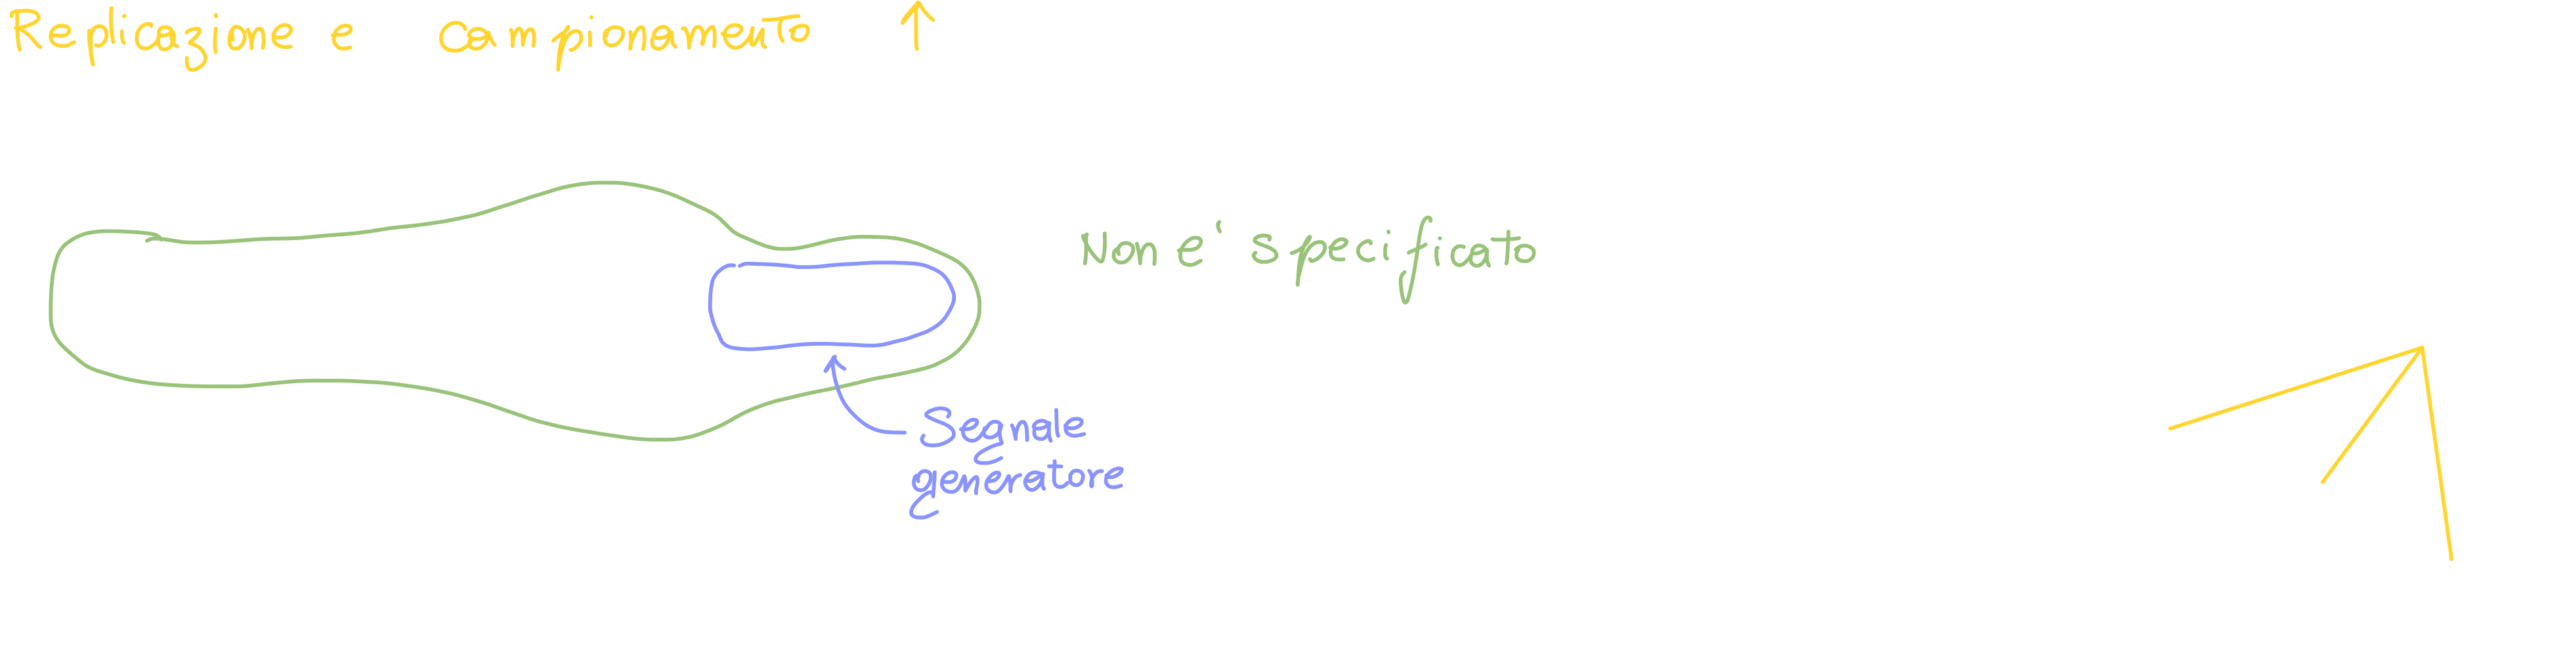 Replicazione e campionamento ↑
Non e' specificato
Segnale
generatore